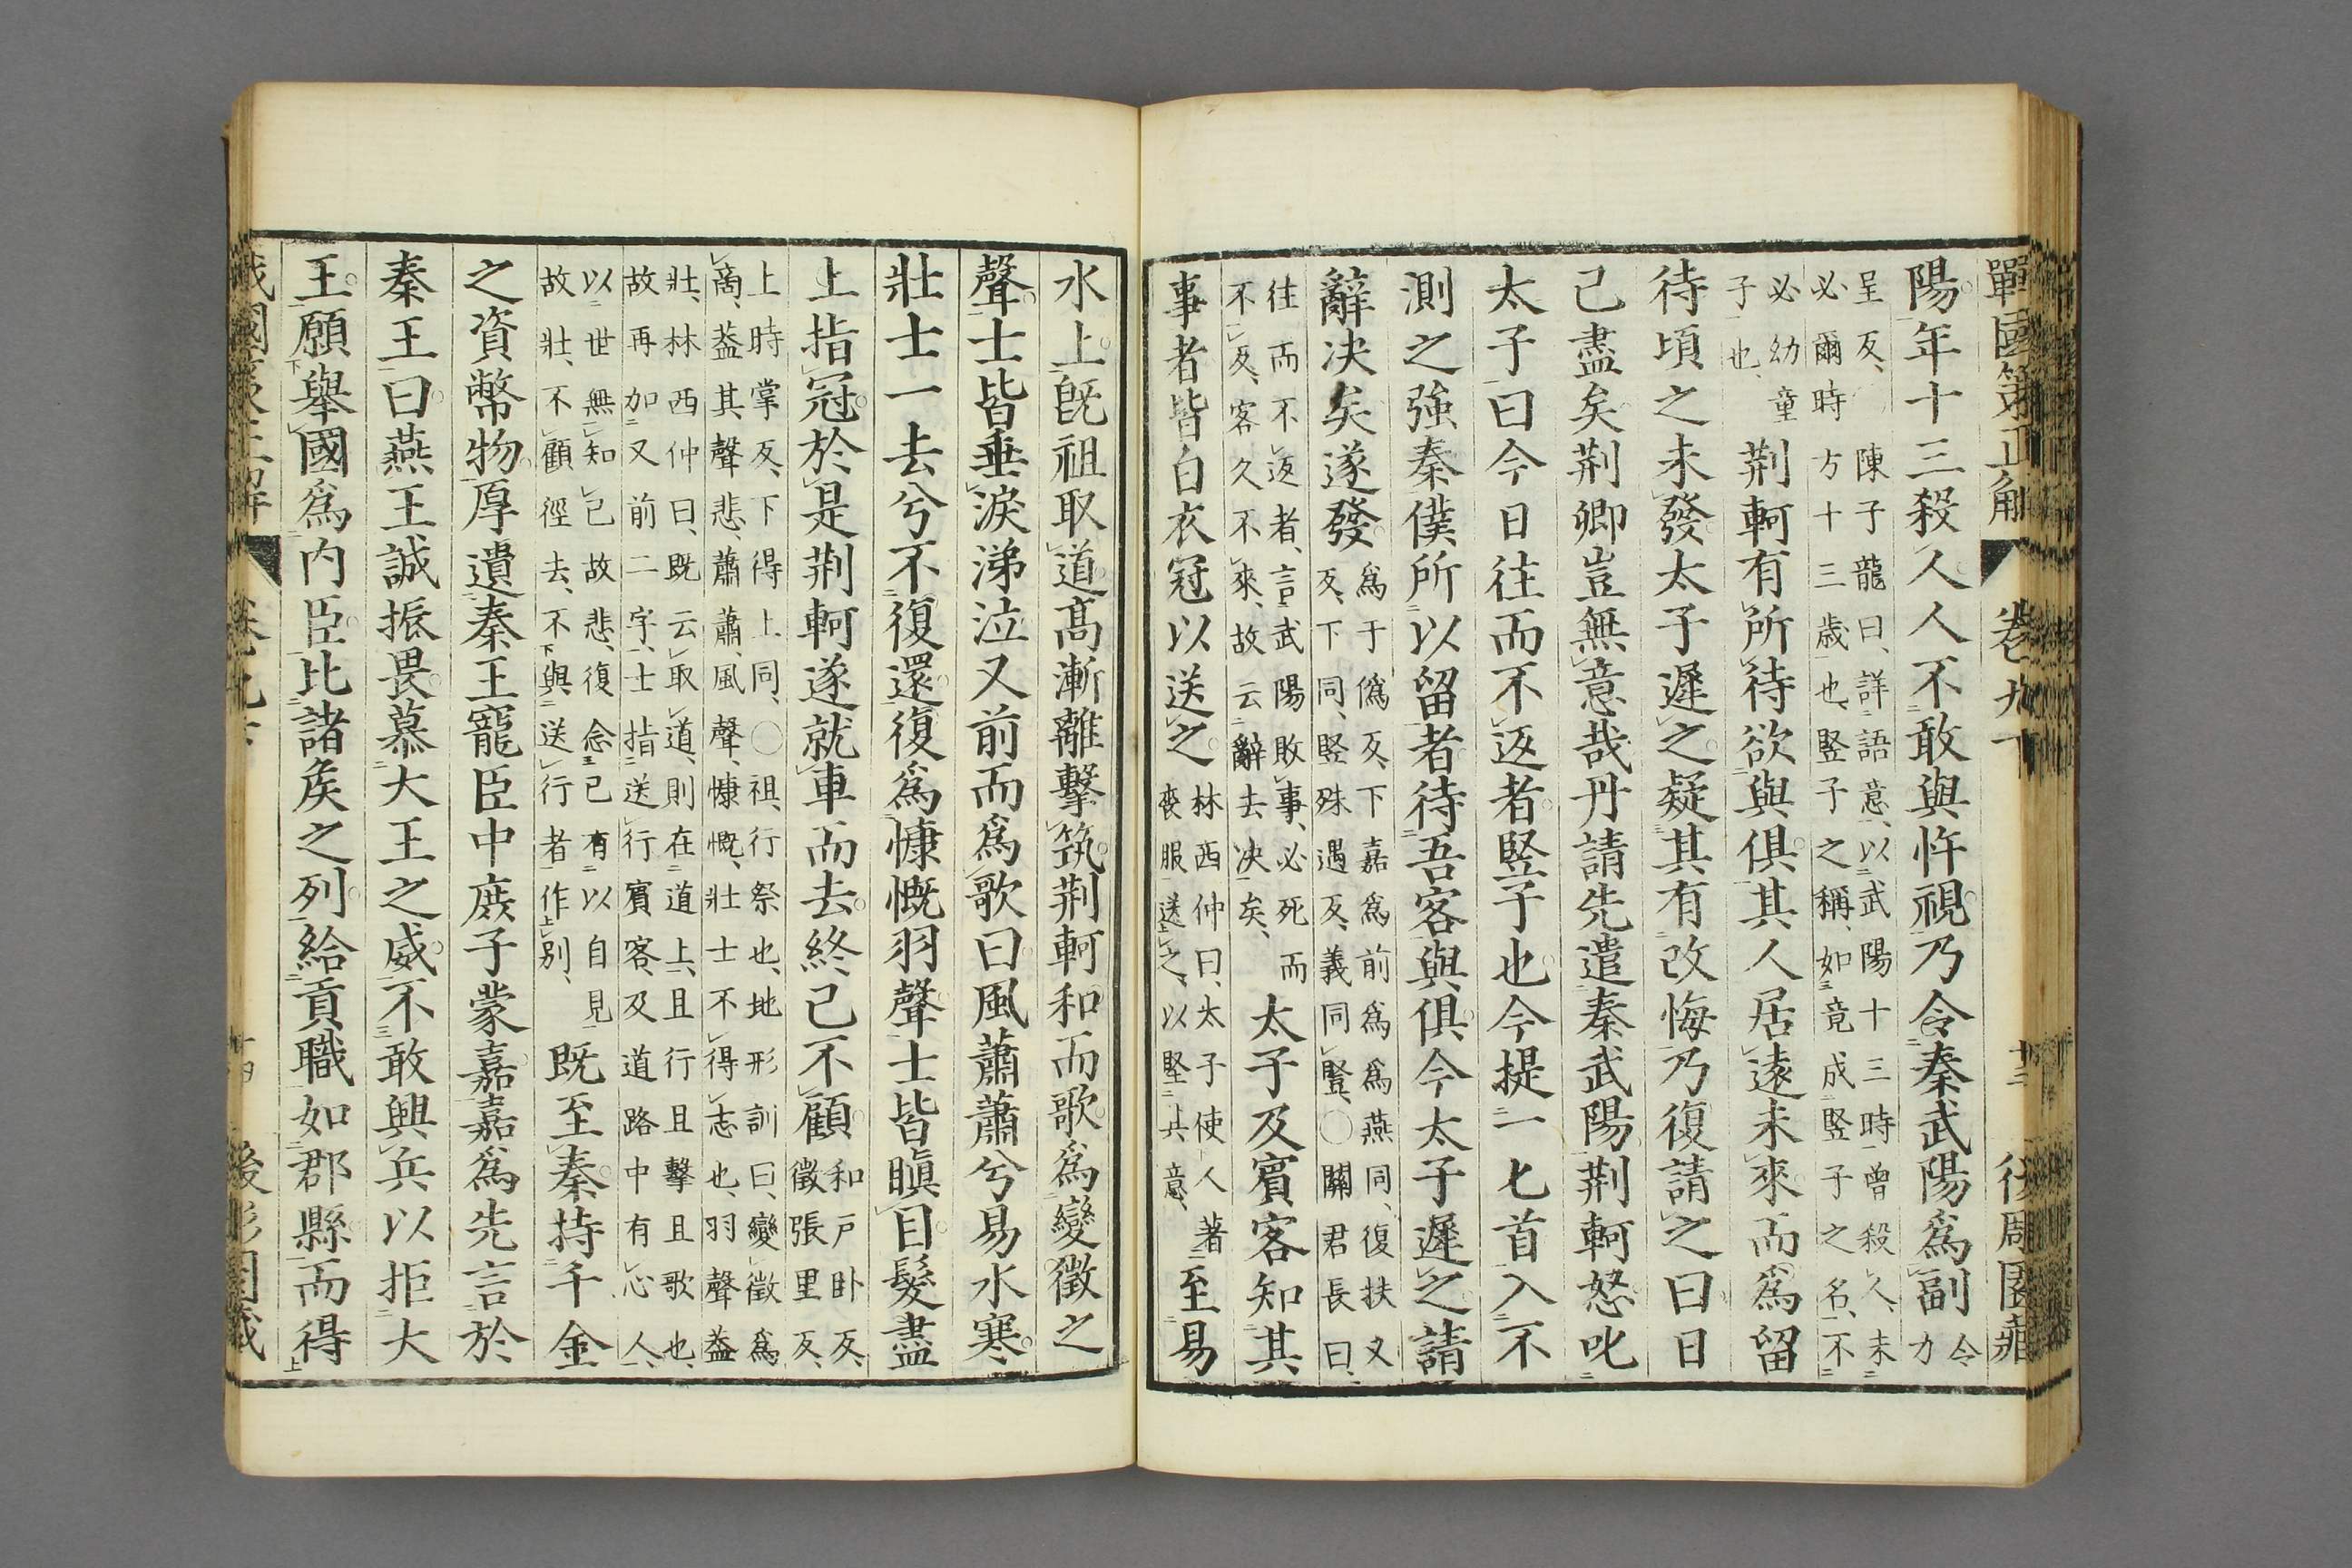 陽年十三殺人人不敢與忤視乃令秦武陽爲副令力
呈反、○陳子龍曰、詳語意、以武陽十三時曾殺人、未
必爾時方十三歲也、竪子之稱、如竟成竪子之名、不
必幼童子也、荆軻有所待欲與俱其人居遠未來而爲留
待頃之未發太子遲之疑其有改悔乃復請之曰日
己盡矣荆卿豈無意哉丹請先遣秦武陽荆軻怒叱
太子曰今日往而不返者竪子也今提一匕首入不
測之強秦僕所以留者待吾客與俱今太子遲之請
辭决矣遂發爲于僞反、下嘉爲前爲爲燕同、復扶又
反、下同、竪殊遇反、義同豎、○關君長曰、
往而不返者、言武陽敗事、必死而
不反、客久不來、故云辭去决矣、太子及賓客知其
事者皆白衣冠以送之林西仲曰、太子使人著
喪服送之、以堅其意、至易
水上旣祖取道高漸離擊筑荆軻和而歌爲變徵之
聲士皆垂淚涕泣又前而爲歌曰風蕭蕭兮易水寒
壯士一去兮不復還復爲慷慨羽聲士皆瞋目髮盡
上指冠於是荆軻遂就車而去終已不顧和戸卧反、
徵張里反、
上時掌反、下得上同、○祖、行祭也、地形訓曰、變徵爲
商、益其聲悲、蕭蕭、風聲、慷慨、壯士不得志也、羽聲益
壯、林西仲曰、既云取道、則在道上、且行且擊且歌也、
故再加又前二字、士指送行賓客、及道路中有心人、
以世無知己故悲、復念己有以自見
故壯、不顧徑去、不與送行者作別、既至秦持千金
之資幣物厚遺秦王寵臣中庶子蒙嘉嘉爲先言於
秦王曰燕王誠振畏慕大王之威不敢興兵以拒大
王願舉國爲内臣比諸矦之列給貢職如郡縣而得